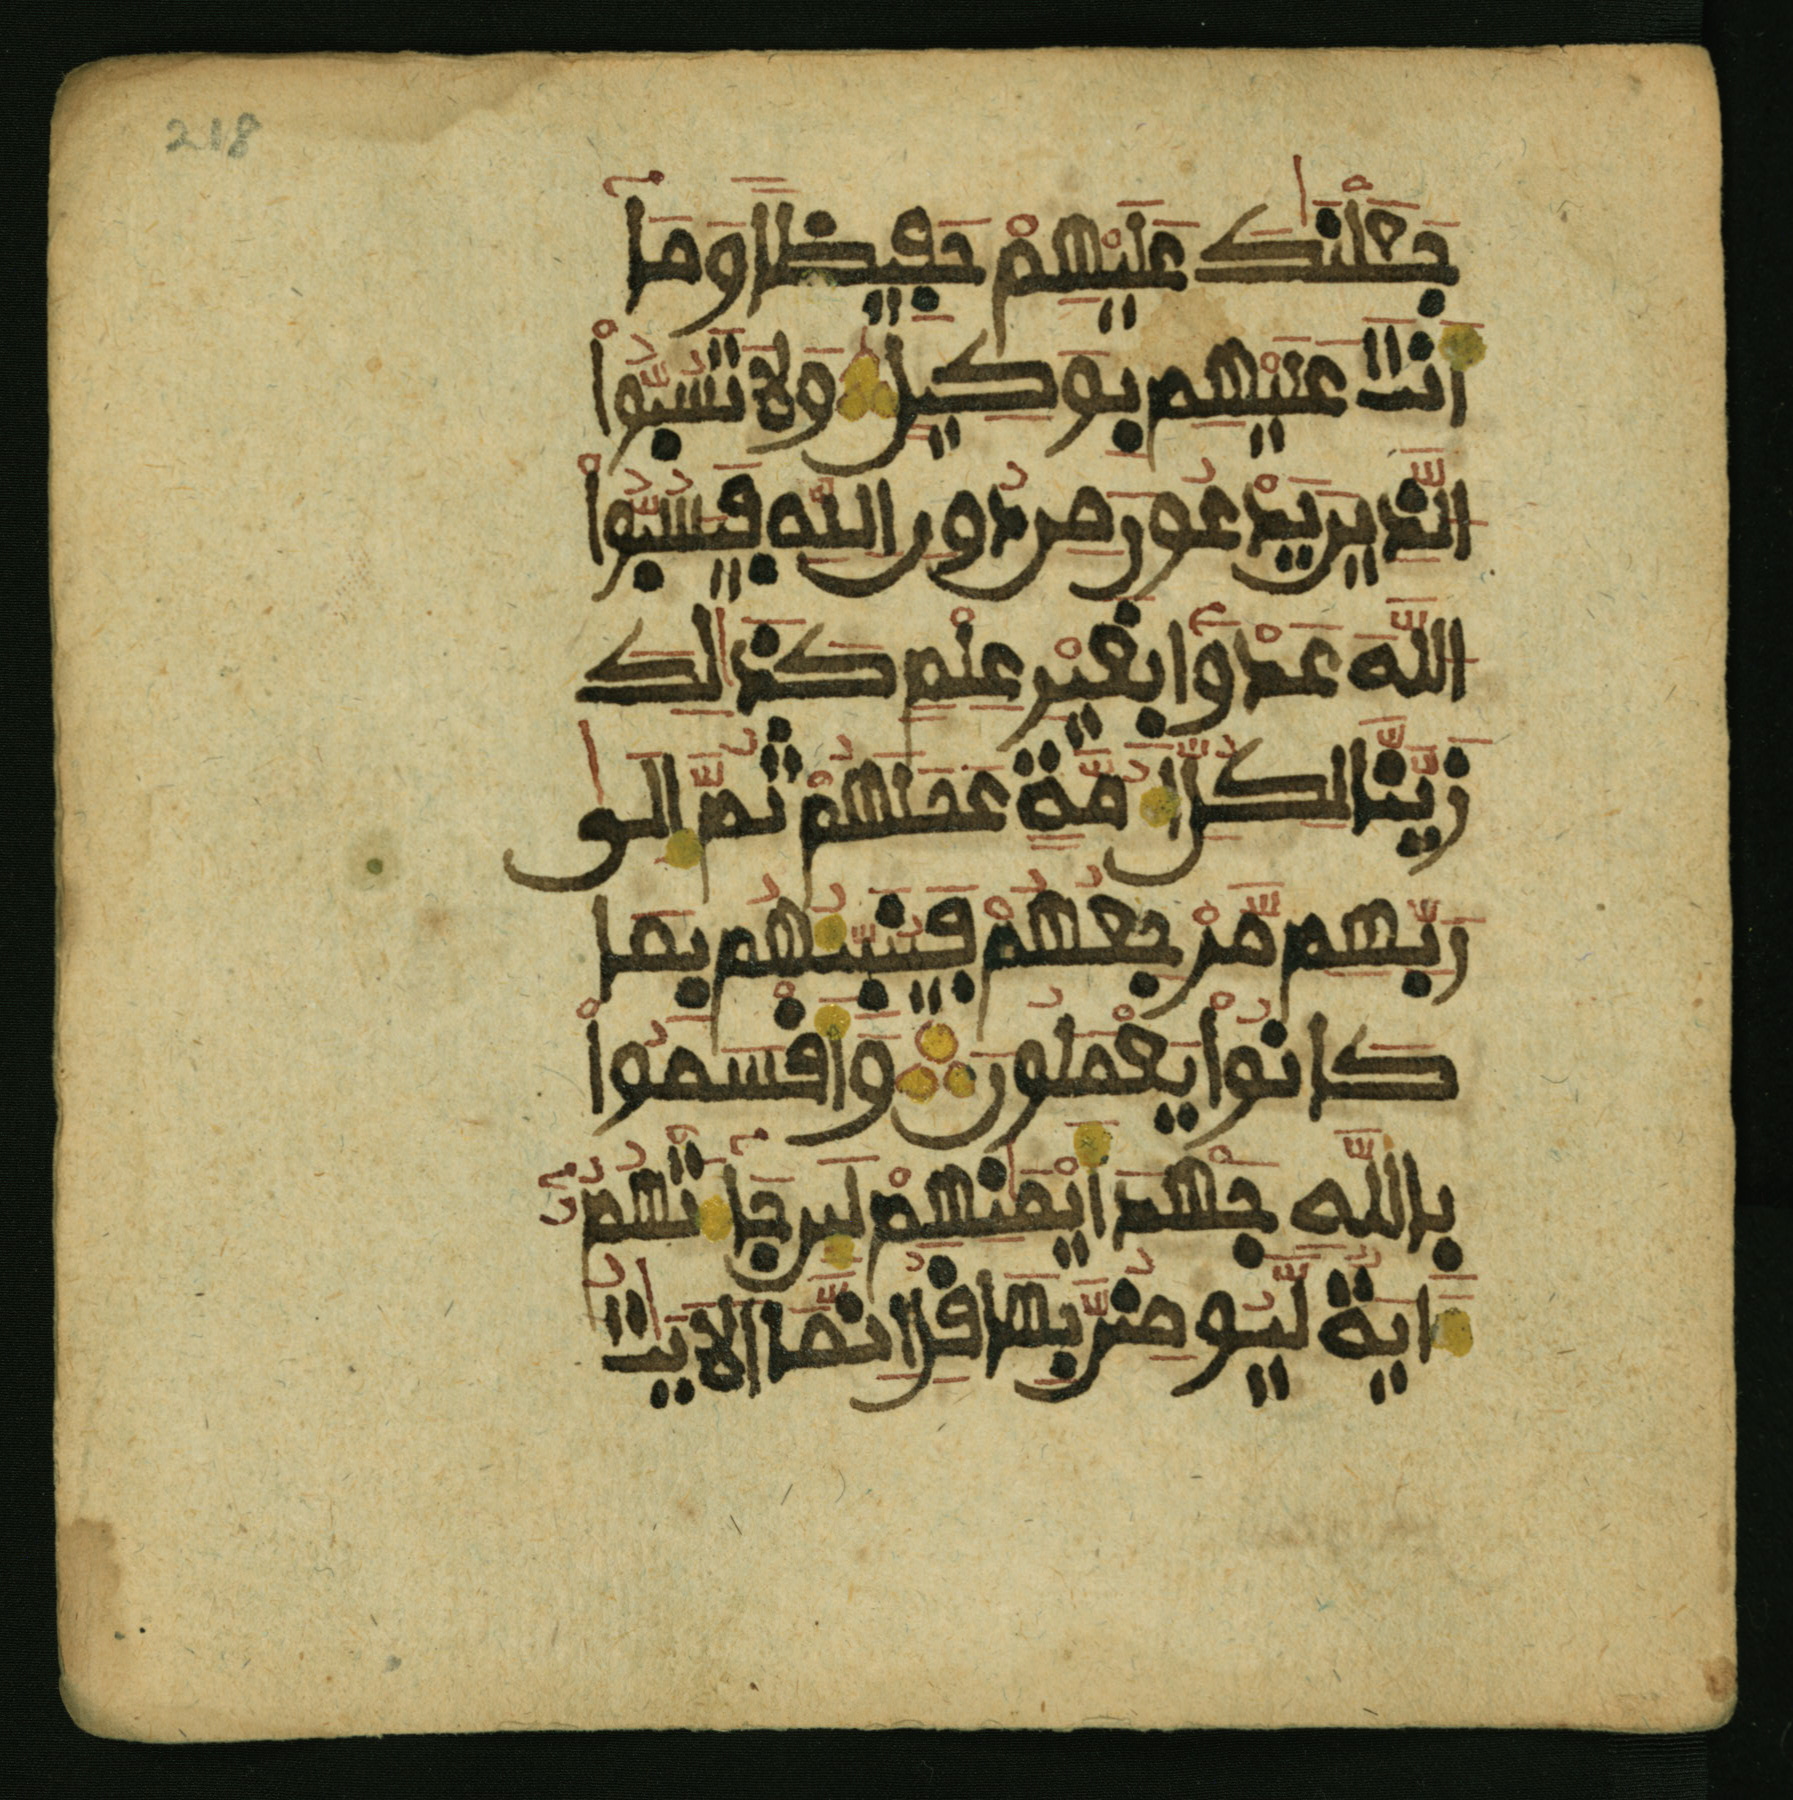 218
جَعَلْنَٰكَ عَلَيْهِمْ حَفِيظًا وَمَآ
أَنتَ عَلَيْهِم بِوَكِيلٍ وَلَا تَسُبُّواْ
الَّذِينَ يَدْعُونَ مِن دُونِ اللَّهِ فَيَسُبُّواْ
اللَّهَ عَدْوًا بِغَيْرِ عِلْمٍ كَذَٰلِكَ
زَيَّنَّا لِكُلِّ أُمَّةٍ عَمَلَهُمْ ثُمَّ إِلَىٰ
رَبِّهِم مَّرْجِعُهُمْ فَيُنَبِّئُهُم بِمَا
كَانُواْ يَعْمَلُونَ وَأَقْسَمُواْ
بِاللَّهِ جَهْدَ أَيْمَٰنِهِمْ لَئِن جَآءَتْهُمُ
ءَايَةٌ لَّيُومِنُنَّ بِهَا قُلِ انَّمَا الَايَٰتُ